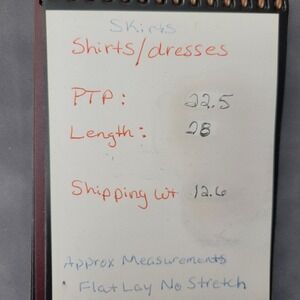 Skirts
Shirts/dresses
PTP: 22.5
Length: 28
Shipping wt 12.6
Approx Measurements
Flat Lay No Stretch